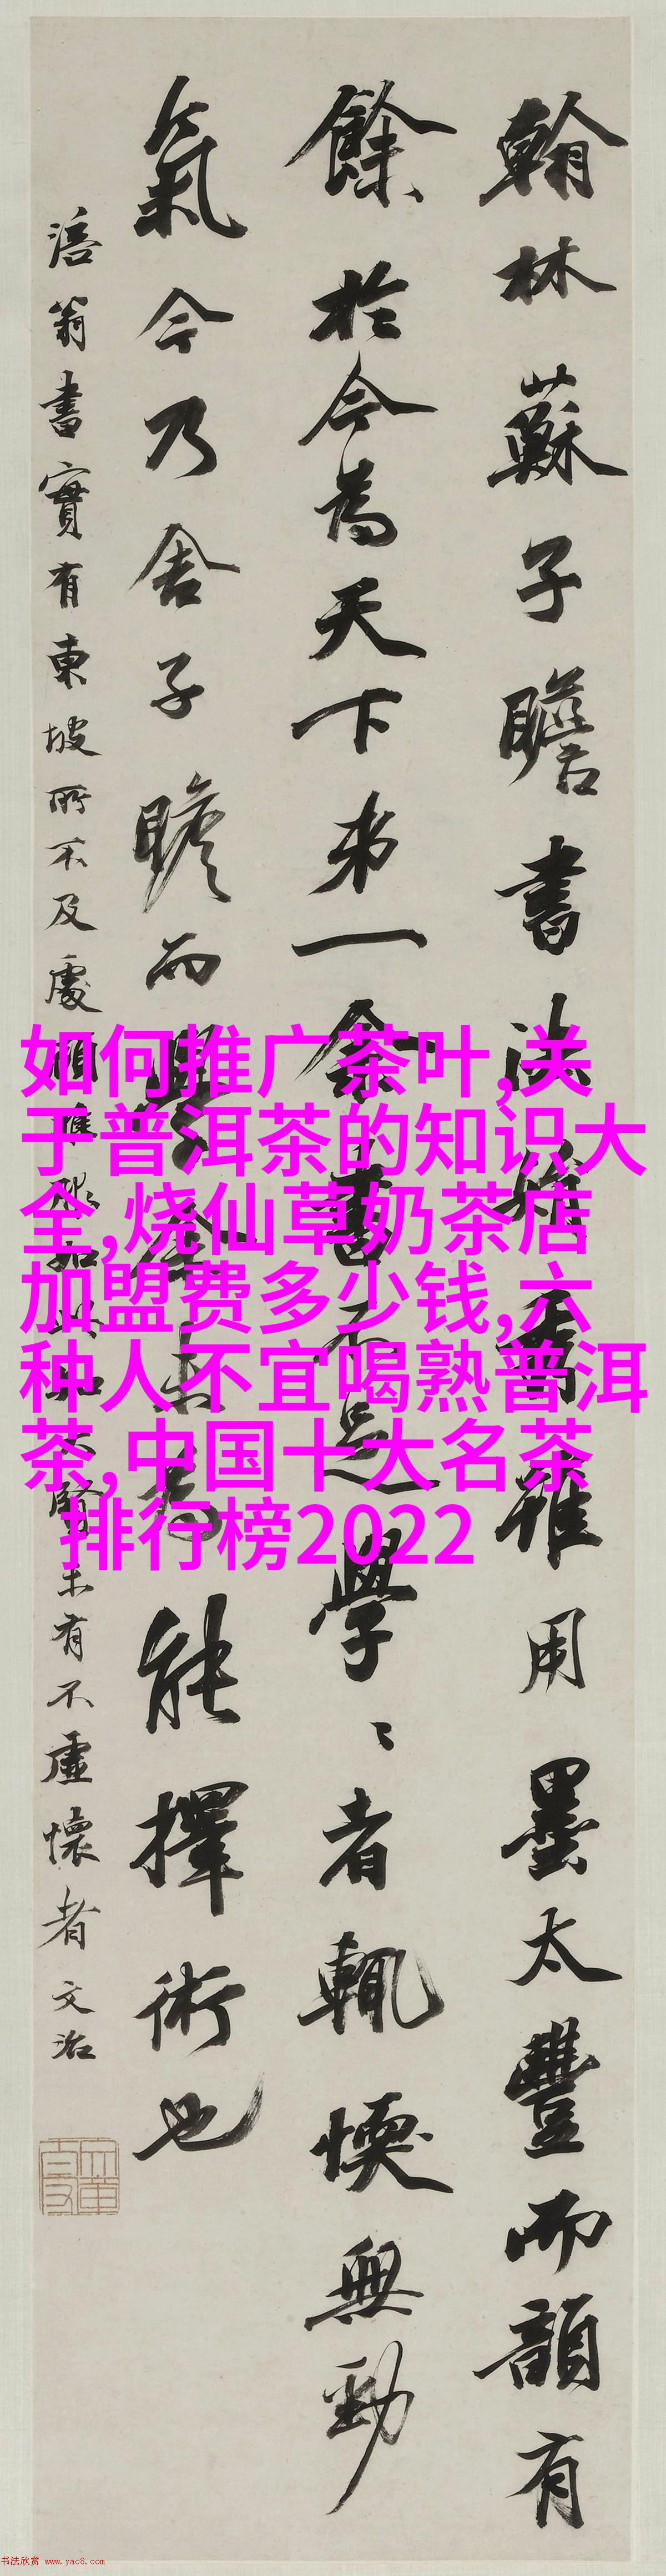 翰林蘇子瞻書法娟秀雖用墨太豐而韻有
餘於今為天下弟一余書不足學〻者輒愞無勁
氣今乃舍子瞻而學余未為能擇術也
涪翁書實有東坡所不及處如此知大賢未有不虛懷者文治
如何推广茶叶,关
于普洱茶的知识大
全,烧仙草奶茶店
加盟费多少钱,六
种人不宜喝熟普洱
茶,中国十大名茶
排行榜2022
书法欣赏 www.yac8.com